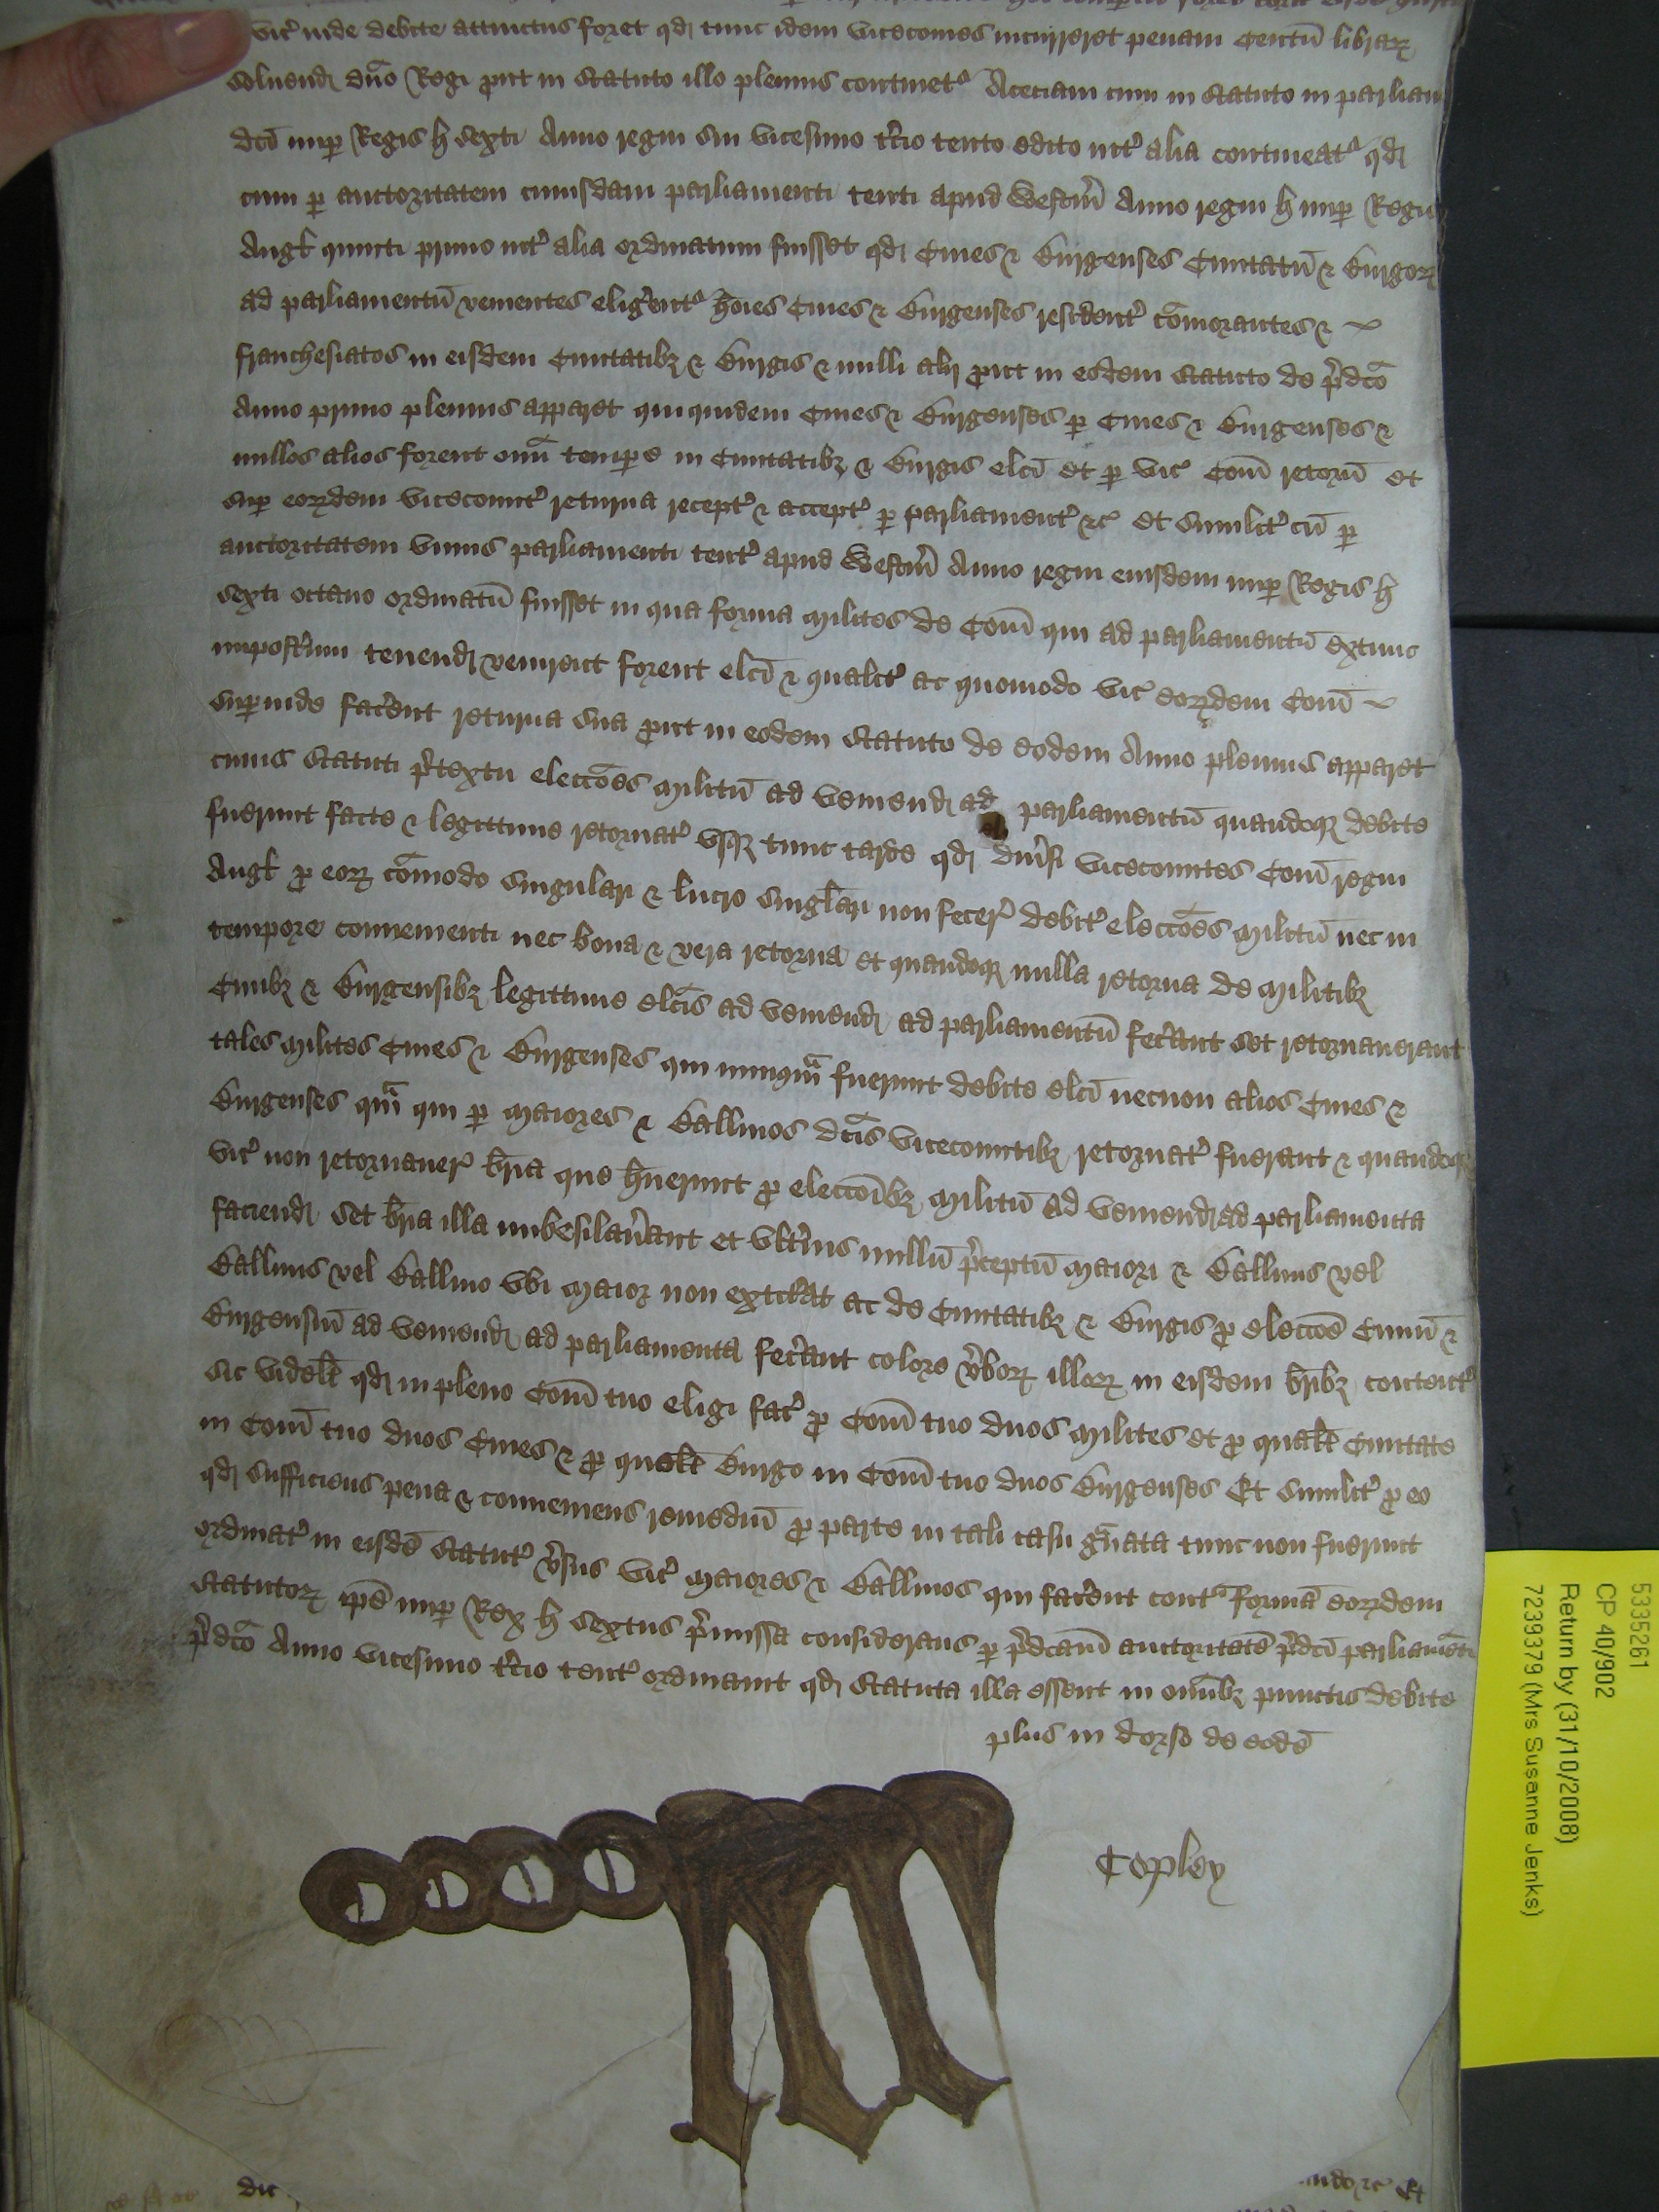 vic' inde debite attinctus foret qd tunc idem vicecomes incurreret penam Centū librar'
Solvend' dn̄o Regi put in Statuto illo plenius continet' Aceciam cum in Statuto in parliam
dcī nup Regis h Sexti Anno regni sui vicesimo t'cio tento edito int' alia contineat' qd
cum p auctoritatem cuiusdam parliamenti tenti apud Westm̄ Anno regni h nup Regis
Angl' quinti primo int' alia ordinatum fuisset qd Cives & Burgenses Civitatū & Burgor'
ad parliamentū venientes elig'ent' hōies Cives & Burgenses resident' cōmorantes &
franchesiatos in eisdem Civitatibȝ & Burgis & nulli alij put in eodem Statuto de p'dcō
Anno primo plenius apparet qui quidem Cives & Burgenses p Cives & Burgenses &
nullos alios forent omī tempe in Civitatibȝ & Burgis elcī et p vic' Com̄ retorn̄ et
sup eordem vicecomit' returna recept' & accept' p parliament' &c' et similit' cū p
auctoritatem unius parliamenti tent' apud Westm̄ Anno regni eiusdem nup Regis h
Sexti octavo ordinatū fuisset in qua forma milites de Com̄ qui ad parliamentū extunc
impost'um tenend' venirent forent elcī & qualit' ac quomodo vic' eordem Com̄
supinde fac'ent returna sua put in eodem Statuto de eodem Anno plenius apparet
cuius Statuti p'textu eleccōes militū ad veniend' ad parliamentū quandoqȝ debite
fuerunt facte & legittime retornat' usqȝ tunc tarde qd div'si vicecomites Com̄ regni
Angl' p eor' cōmodo singulari & lucro singlari non fecer' debit' eleccōes militū nec in
tempore convenienti nec bona & vera retorna et quandoqȝ nulla retorna de militibȝ
Civibȝ & Burgensibȝ legittime elcīs ad veniend' ad parliamentū fec'ant set retornaverant
tales milites Cives & Burgenses qui nunqm̄ fuerunt debite elcī necnon alios Cives &
Burgenses qm̄ qui p maiores & Ballivos dcīs vicecomitibȝ retornat' fuerant & quandoqȝ
vic' non retornaver' br̄ia que h̄uerunt p eleccōibȝ militū ad veniend' ad parliamenta
faciend' set br̄ia illa imbesilav'ant et ult'ius nullū p'ceptū maiori & Ballivis vel
Ballivis vel Ballivo ubi maior non extit'at ac de Civitatibȝ & Burgis p eleccōe Civiū &
Burgensiū ad veniend' ad parliamenta fec'ant colore v'bor' illor' in eisdem br̄ibȝ content'
sic videlt̄ qd in pleno Com̄ tuo eligi fac' p Com̄ tuo duos milites et p qualt̄ Civitate
in Com̄ tuo duos Cives & p quolt̄ Burgo in Com̄ tuo duos Burgenses Et similit' p eo
qd sufficiens pena & conveniens remediū p parte in tali casu g'vata tunc non fuerunt
ordinat' in eisdē Statut' v'sus vic' maiores & Ballivos qui fac'ent cont' formā eordem
Statutor' ip̄e nup Rex h Sextus p'missa considerans p p'dcām auctoritatē p'dcī parliamēti
p'dcō Anno vicesimo t'cio tent' ordinavit qd Statuta illa essent in omībȝ punctis debite
plus in dorso de eodē
Copley
dic
Et
5335261
CP 40/902
Return by (31/10/2008)
7239379 (Mrs Susanne Jenks)